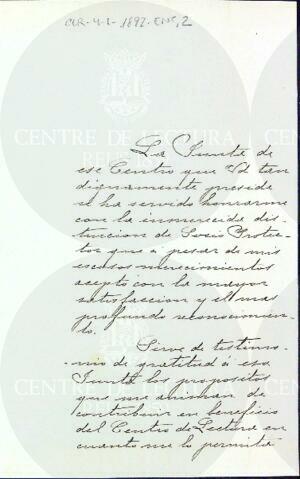 CLR-4-1-1892-ENE, 2
CENTRE DE LECTURA
La Junta de
ese Centro que Vd tan
dignamente preside
se ha servido honrarme
con la inmerecida dis-
tincion de Socio Protec-
tor que a pesar de mis
escasos merecimientos
acepto con la mayor
satisfaccion y el mas
profundo reconocimien-
to.
Sirve de testimo-
nio de gratitud á esa
Junta los propositos
que me animan de
contribuir en beneficio
del Centro de Lectura en
cuanto me lo permita